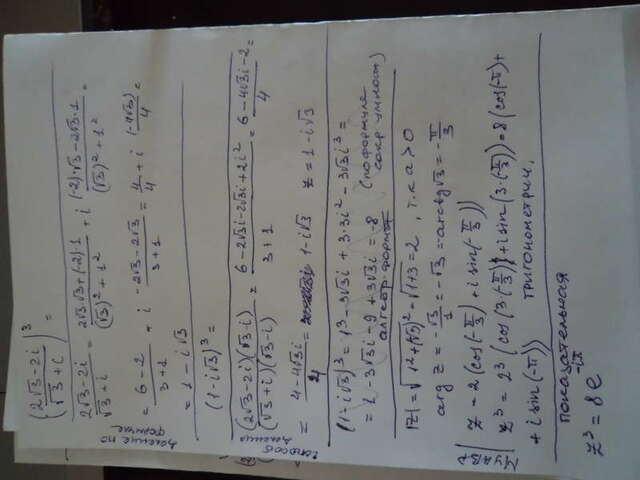 (2√3-2i / √3+i)³ =
деление по формуле
2√3-2i / √3+i = 2√3·√3+(-2)·1 / (√3)²+1² + i (-2)·√3-2√3·1 / (√3)²+1² =
= 6-2 / 3+1 + i -2√3-2√3 / 3+1 = 4/4 + i (-4√3)/4 =
= 1-i√3
(1-i√3)³ =
(2√3-2i)(√3-i) / (√3+i)(√3-i) = 6-2√3i-2√3i+2i² / 3+1 = 6-4√3i-2 / 4 =
= 4-4√3i / 4 = 1-i√3 z=1-i√3
(1-i√3)³ = 1³-3√3i+3·3i²-3√3i³ =
= 1-3√3i-9+3√3i = -8 (по формуле сокр умнож)
алгебр. форма
|z| = √1²+(√3)² = √1+3 = 2, т.к a>0
arg z = -√3/1 = -√3 = -arctg√3 = -π/3
z = 2(cos(-π/3)+i sin(-π/3))
z³ = 2³(cos(3·(-π/3))+i sin(3·(-π/3))) = 8(cos(-π)+
+i sin(-π)) тригонометрич.
показательная
z³ = 8e^-iπ